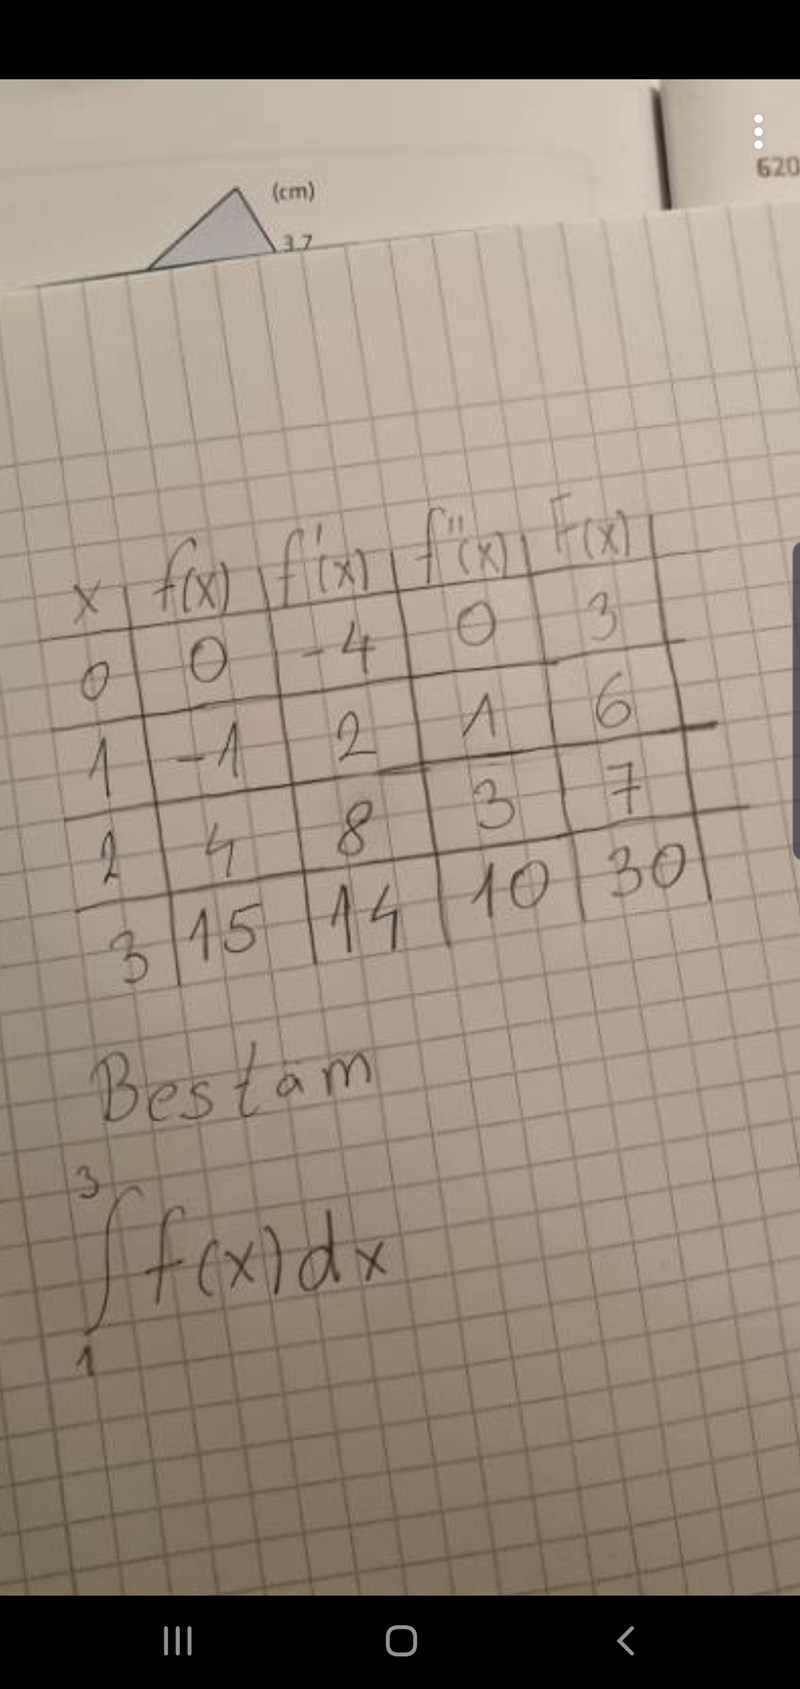 620
(cm)
3.7
x f(x) f'(x) f''(x) F(x)
0 0 -4 0 3
1 -1 2 1 6
2 4 8 3 7
3 15 14 10 30
Bestäm
3
∫ f(x) dx
1